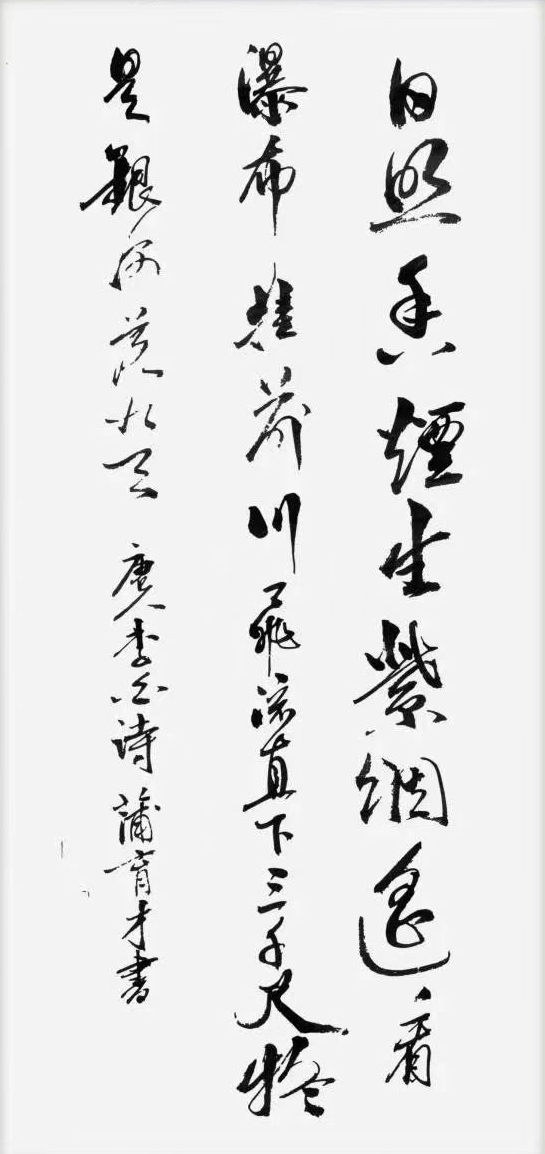 日照香煙生紫遙看
瀑布挂前川飛流直下三千尺疑
是銀河落九天 唐人李白詩 蒲育才書